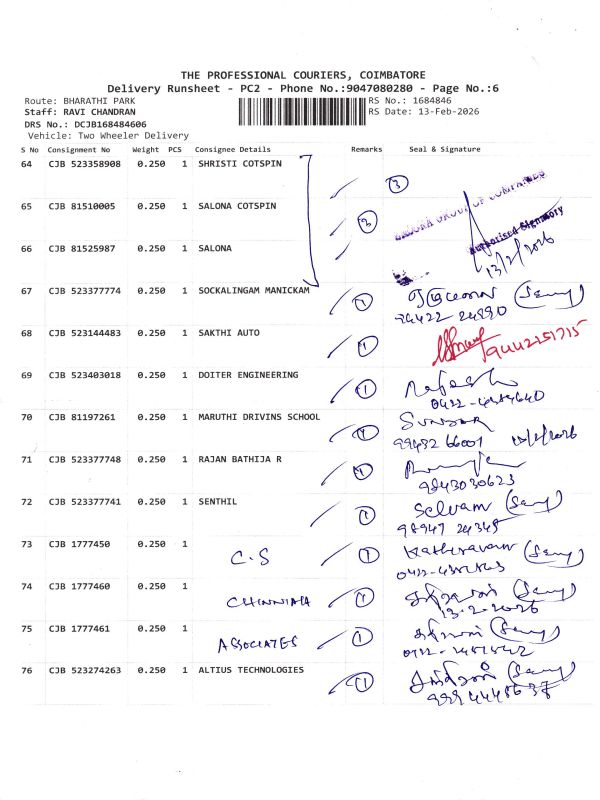 THE PROFESSIONAL COURIERS, COIMBATORE
Delivery Runsheet - PC2 - Phone No.:9047080280 - Page No.:6
Route: BHARATHI PARK RS No.: 1684846
Staff: RAVI CHANDRAN RS Date: 13-Feb-2026
DRS No.: DCJB168484606
Vehicle: Two Wheeler Delivery
S No Consignment No Weight PCS Consignee Details Remarks Seal & Signature
64 CJB 523358908 0.250 1 SHRISTI COTSPIN 3
65 CJB 81510005 0.250 1 SALONA COTSPIN 3 GROUP OF COMPANIES
Authorised Signatory
66 CJB 81525987 0.250 1 SALONA 13/2/2026
67 CJB 523377774 0.250 1 SOCKALINGAM MANICKAM 1
68 CJB 523144483 0.250 1 SAKTHI AUTO 1 9442151715
69 CJB 523403018 0.250 1 DOITER ENGINEERING 1 Rajesh
70 CJB 81197261 0.250 1 MARUTHI DRIVINS SCHOOL 1 SUNDAR
71 CJB 523377748 0.250 1 RAJAN BATHIJA R 1
9843030623
72 CJB 523377741 0.250 1 SENTHIL 1 Selvam
98947 24345
73 CJB 1777450 0.250 1 C.S 1
74 CJB 1777460 0.250 1 CHINNIAH 1
13-2-2026
75 CJB 1777461 0.250 1 ASSOCIATES 1
76 CJB 523274263 0.250 1 ALTIUS TECHNOLOGIES 1